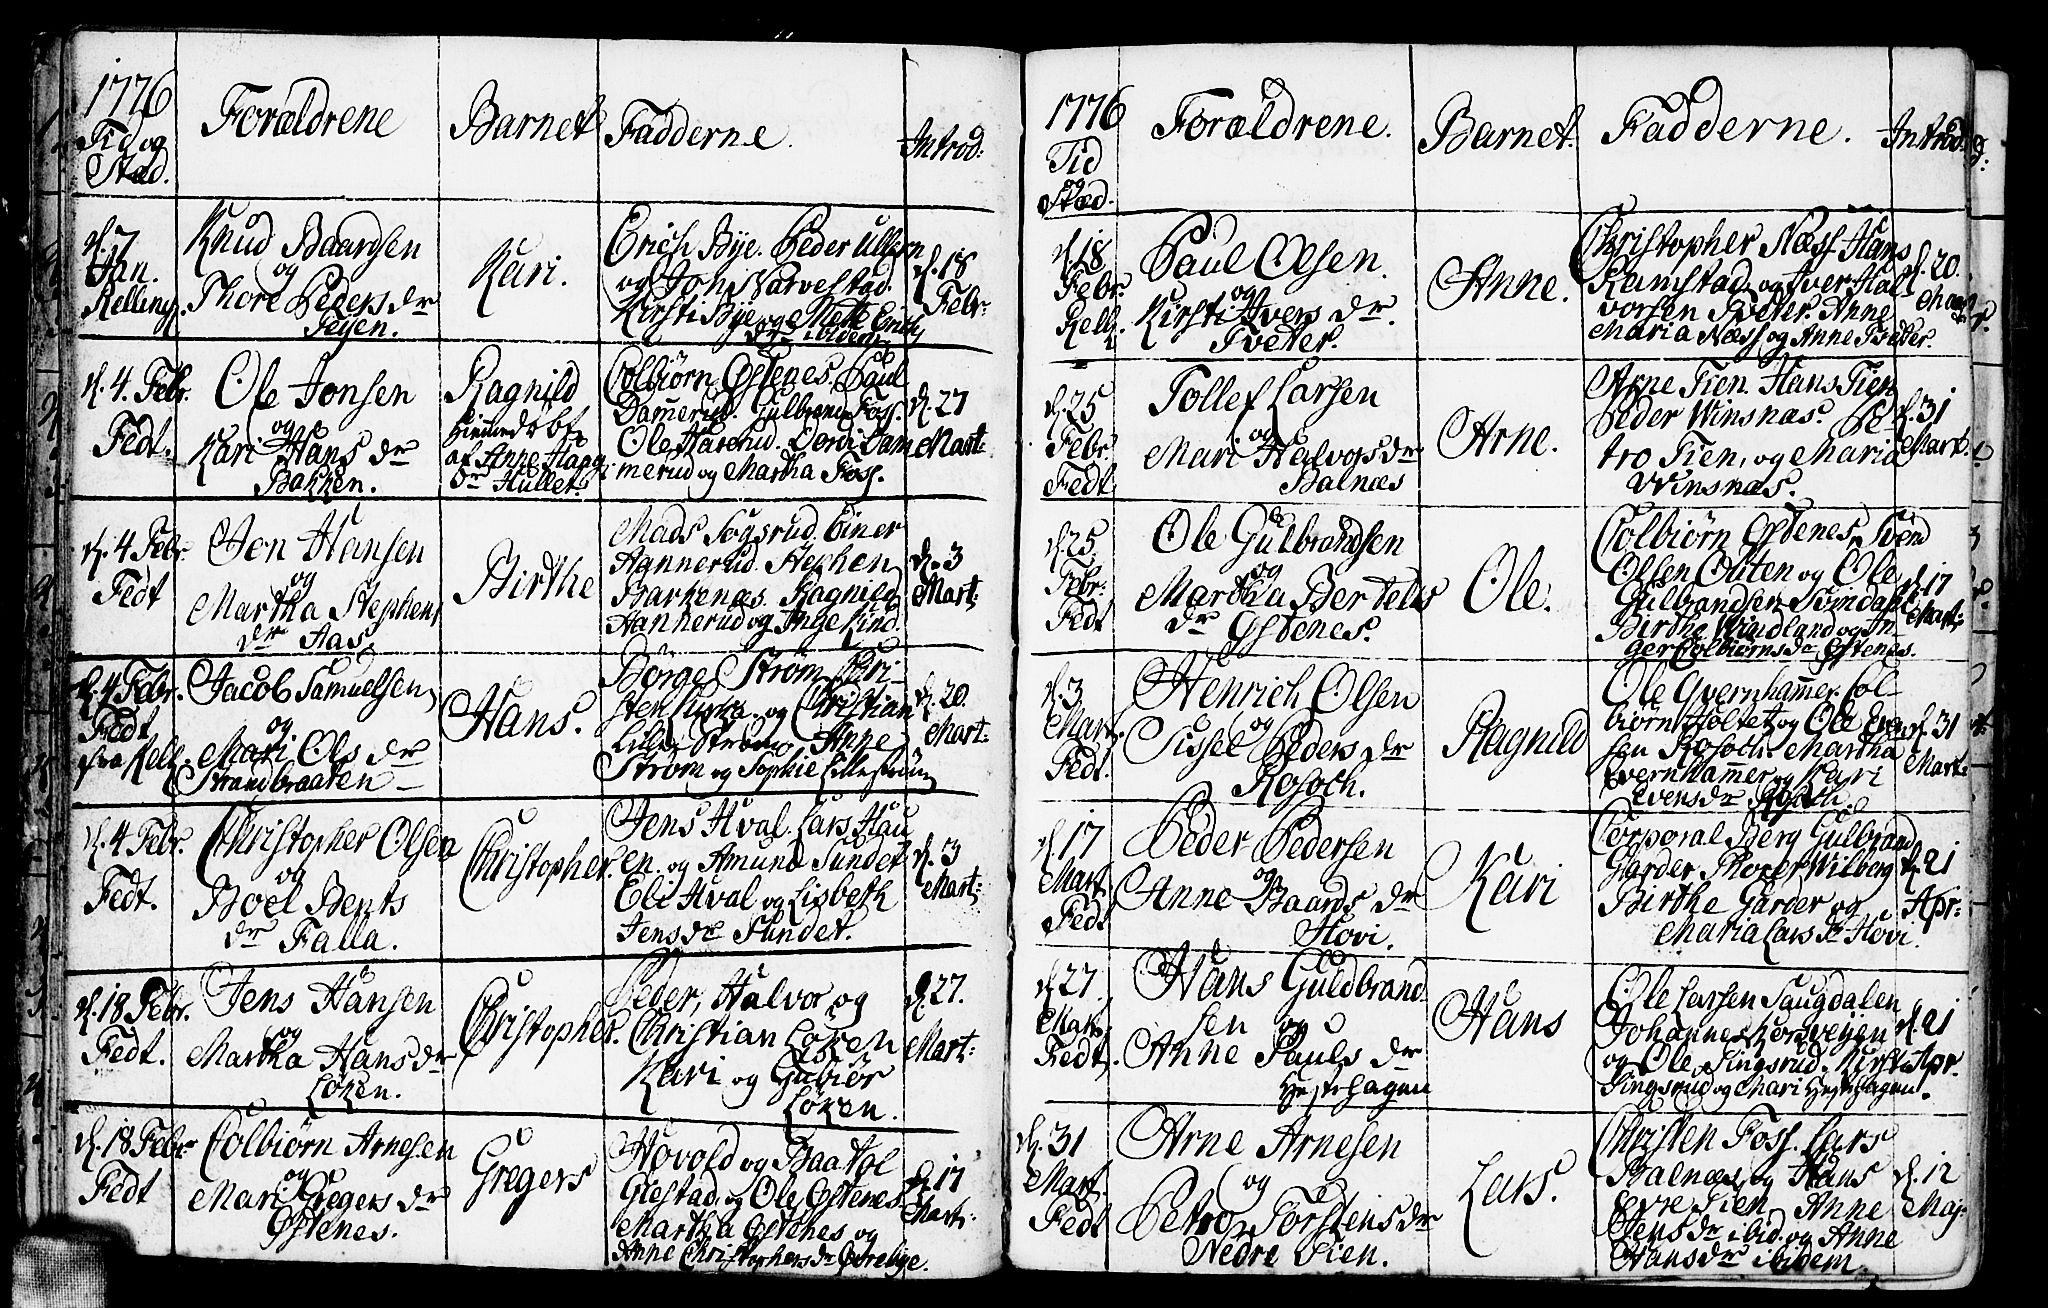 1776
Tid og
Stæd.
Forældrene
Barnet
Fadderne.
Introd:
d. 7
Jan.
Relling.
Knud Baardsen
og
Thore Peders dr
Fejen.
Kari.
Erich Bye. Peder Ullern
og John Varvestad.
Kirsti Bye og Mette Erichs
dr ibidem
d. 18
Febr:
d. 4. Febr.
Fedt.
Ole Jonsen
og
Kari Hans dr
Bakken.
Ragnild
Hiemedøbt
af Anne Hans
dr Hullet.
Colbiørn Østenes. Paul
Dammerud. Gulbrand Foss.
Ole Haserud. Dorthi Dam
merud og Martha Foss.
d. 27
Mart:
d. 4 Febr.
Fedt
Jon Hansen
og
Martha Stephens
dr Aas
Birthe
Mads Sogsrud. Einer
Hannerud. Stephen
Barkenæs. Ragnild
Hannerud og Inge Kind.
d. 3
Mart:
d. 4 Febr.
Fedt
fra Rell.
Jacob Samuelsen
og
Mari Ols dr
Strandbraaten
Hans.
Børge Strøm. Kri-
sten og Christian
Lille Strøm. Anne
Strøm og Sophie Lillestrøm
d. 20.
Mart:
d. 4 Febr.
Fedt.
Christopher Olsen
og
Boel Bents
dr Falla.
Christopher.
Jens Hval. Lars Hau
en. og Amund Sundet
Eli Hval og Lisbeth
Jens dr Sundet.
d. 3
Mart:
d. 18 Febr.
Fedt.
Jens Hansen
og
Martha Hans dr
Løken.
Christopher.
Peder, Halvor og
Christian Løken
Kari og Gubiør
Løken.
d. 27.
Mart:
d. 18 Febr
Fedt
Colbiørn Arnesen
og
Mari Gregers dr
Østenes.
Gregers
Hovold og Baa Hol
Giestad og Ole Østenes.
Martha Østenes og
Anne Christophers dr
d. 17
Mart:
1776
Tid
og
Stæd.
Forældrene.
Barnet.
Fadderne.
Introd:
d. 18
Febr.
Rell.
Paul Olsen.
og
Kirsti Ivers dr.
Tveter.
Anne.
Christopher Næss Hans
Ramstad og Iver Hal
vorsen Tveter. Anne
Maria Næss og Anne Tveter.
d. 20.
Mart
d. 25
Febr.
Fedt
Tollef Larsen
og
Mari Halvors dr
Balnæs
Arne.
Arne Tien. Hans Tien
Peder Winsnæs. Pe-
tro Tien, og Maria
Winsnæs.
d. 31
Mart.
d. 25
Febr:
Fedt
Ole Gulbrandsen
og
Martha Bertels
dr
Østenes.
Ole.
Colbiørn Østenes, Svend
Olsen Olsten og Ole
Gulbrandsen Sørndahl
Birthe Windland og In-
ger Colbiørns dr Østenes.
d. 17
Mart:
d. 3
Mart.
Fedt.
Henrich Olsen
og
Sissel Peders dr
Rosoth.
Ragnild
Ole Qvernhammer. Col-
biørn Holtet og Ole Even
sen Rosoth. Martha
Qvernhammer og Kari
Evens dr Rosoth.
d. 31
Mart:
d. 17
Mart.
Fedt
Peder Pedersen
og
Anne Baards dr
Hovi.
Kari
Corporal Berg Gulbrand
Garder Thorer Wilberg
Birthe Garder og
Maria Lars dr Hovi.
d. 21
Apr:
d. 27
Mart.
Fedt.
Hans Guldbrand
sen og
Anne Pauls dr
Hestehagen
Hans
Ole Larsen Saugdalen
Johannes Korsvejen
og Ole Tingsrud. Kirsti
Tingsrud og Mari Hestehagen.
d. 21
Apr.
d. 31
Mart.
Fedt
Arne Arnesen
og
Petro Torstens dr
Nedre Tien.
Lars.
Christen Foss. Lars
Balnæs og Hans
Evre Tien, Anne
Jens dr ibid. og Anne
Hans dr ibidem.
d. 12
Maj: